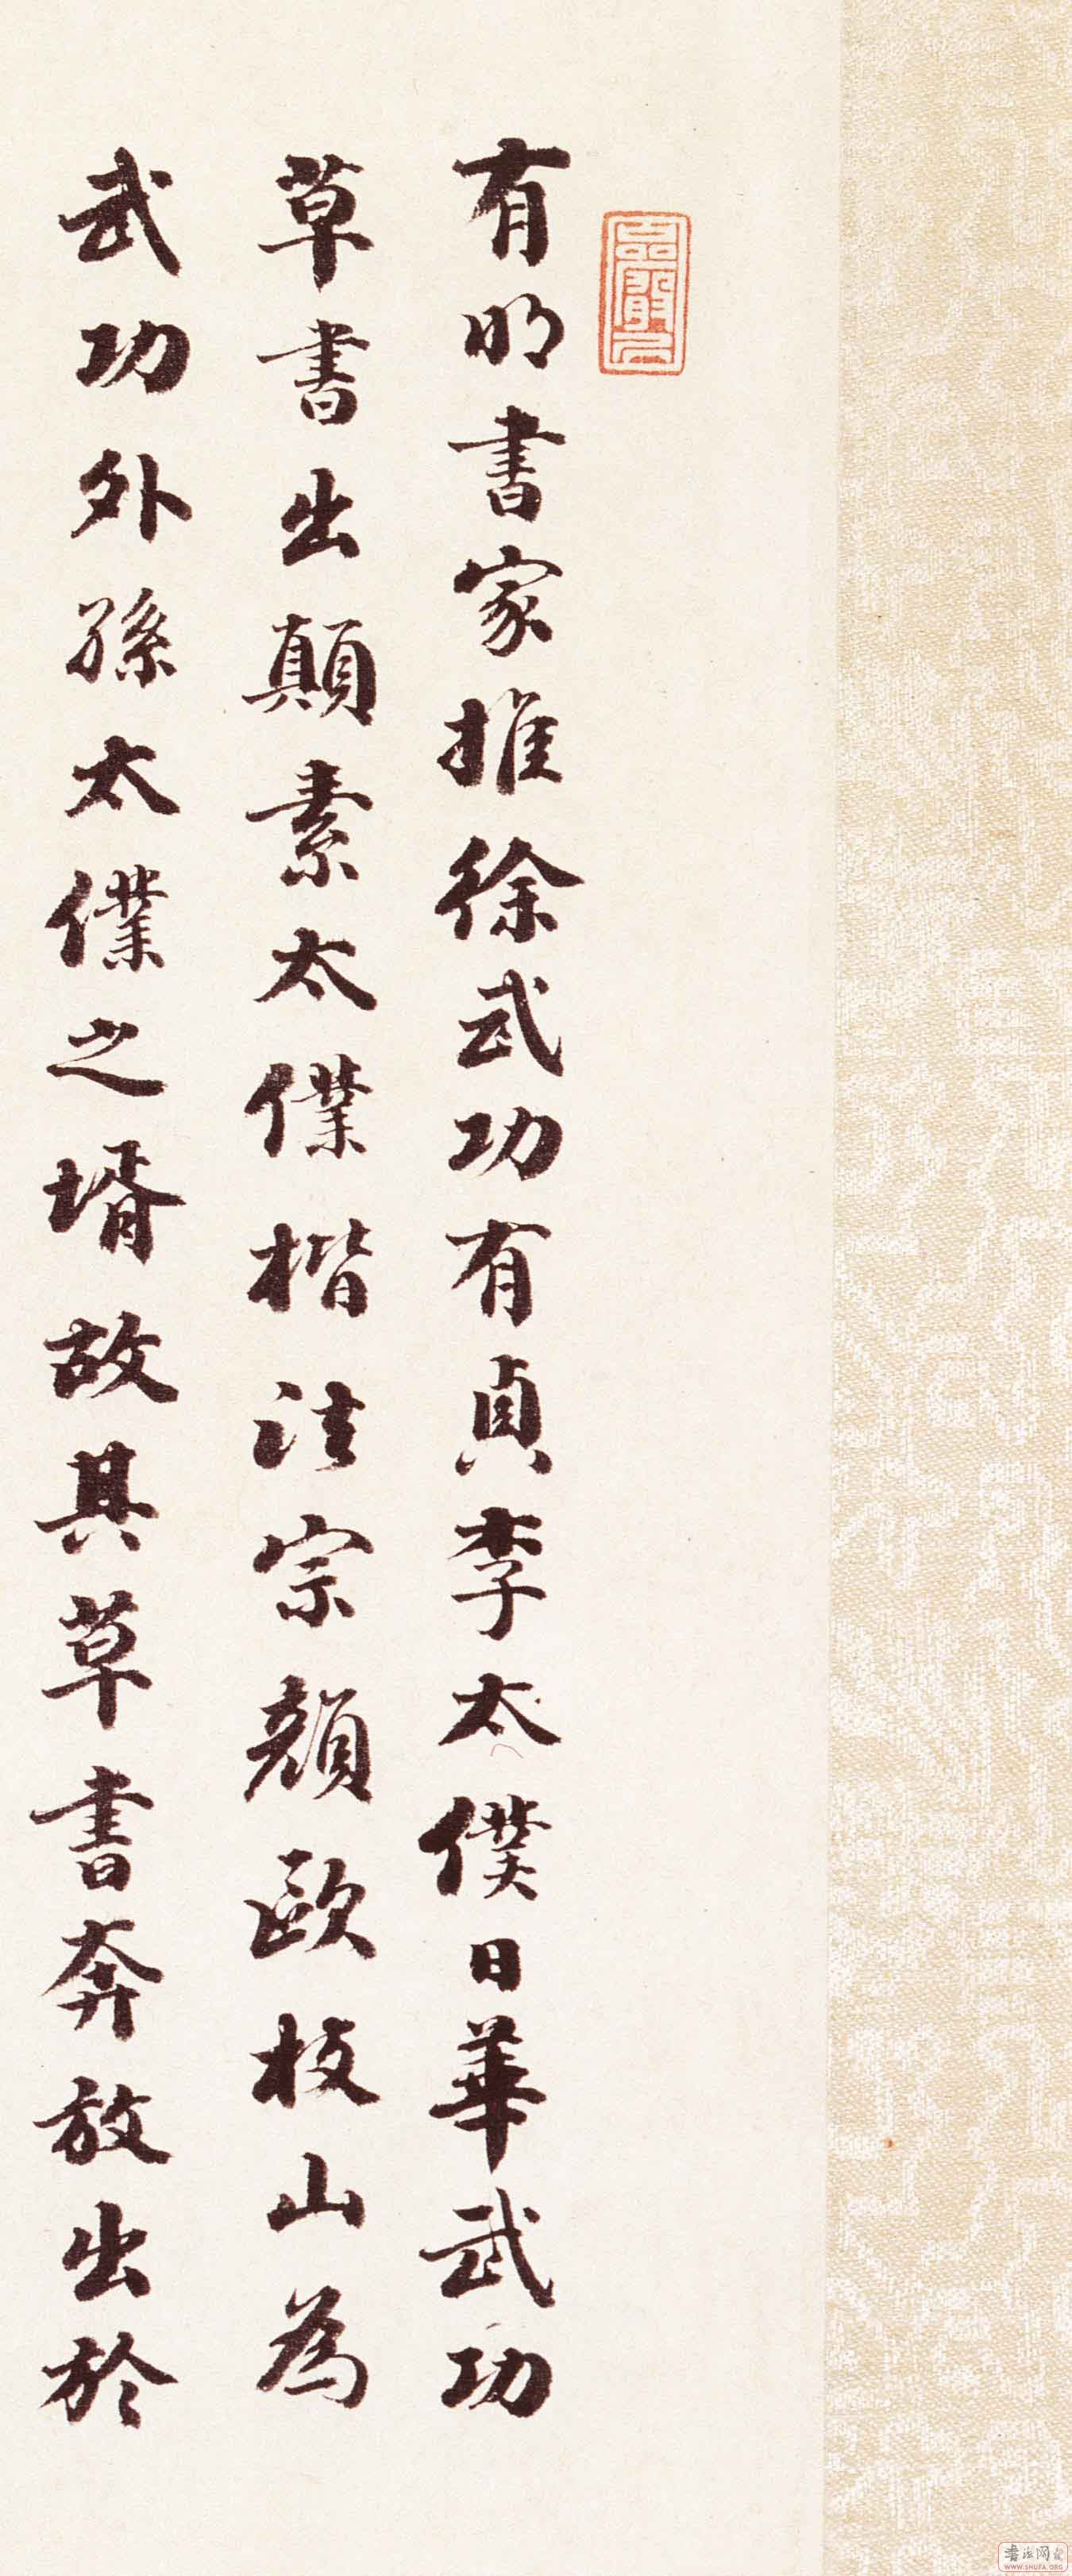 有明書家推徐武功有貞李太僕日華武功
草書出顛素太僕楷法宗顏歐枝山為
武功外孫太僕之壻故其草書奔放出於
書法网
WWW.SHUFA.ORG